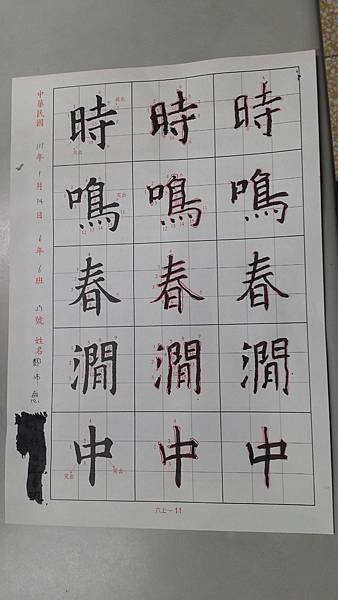 時 時 時
鳴 鳴 鳴
春 春 春
澗 澗 澗
中 中 中
中華民國 111 年 1 月 14 日 6 年 6 班 號 姓名
六上~11